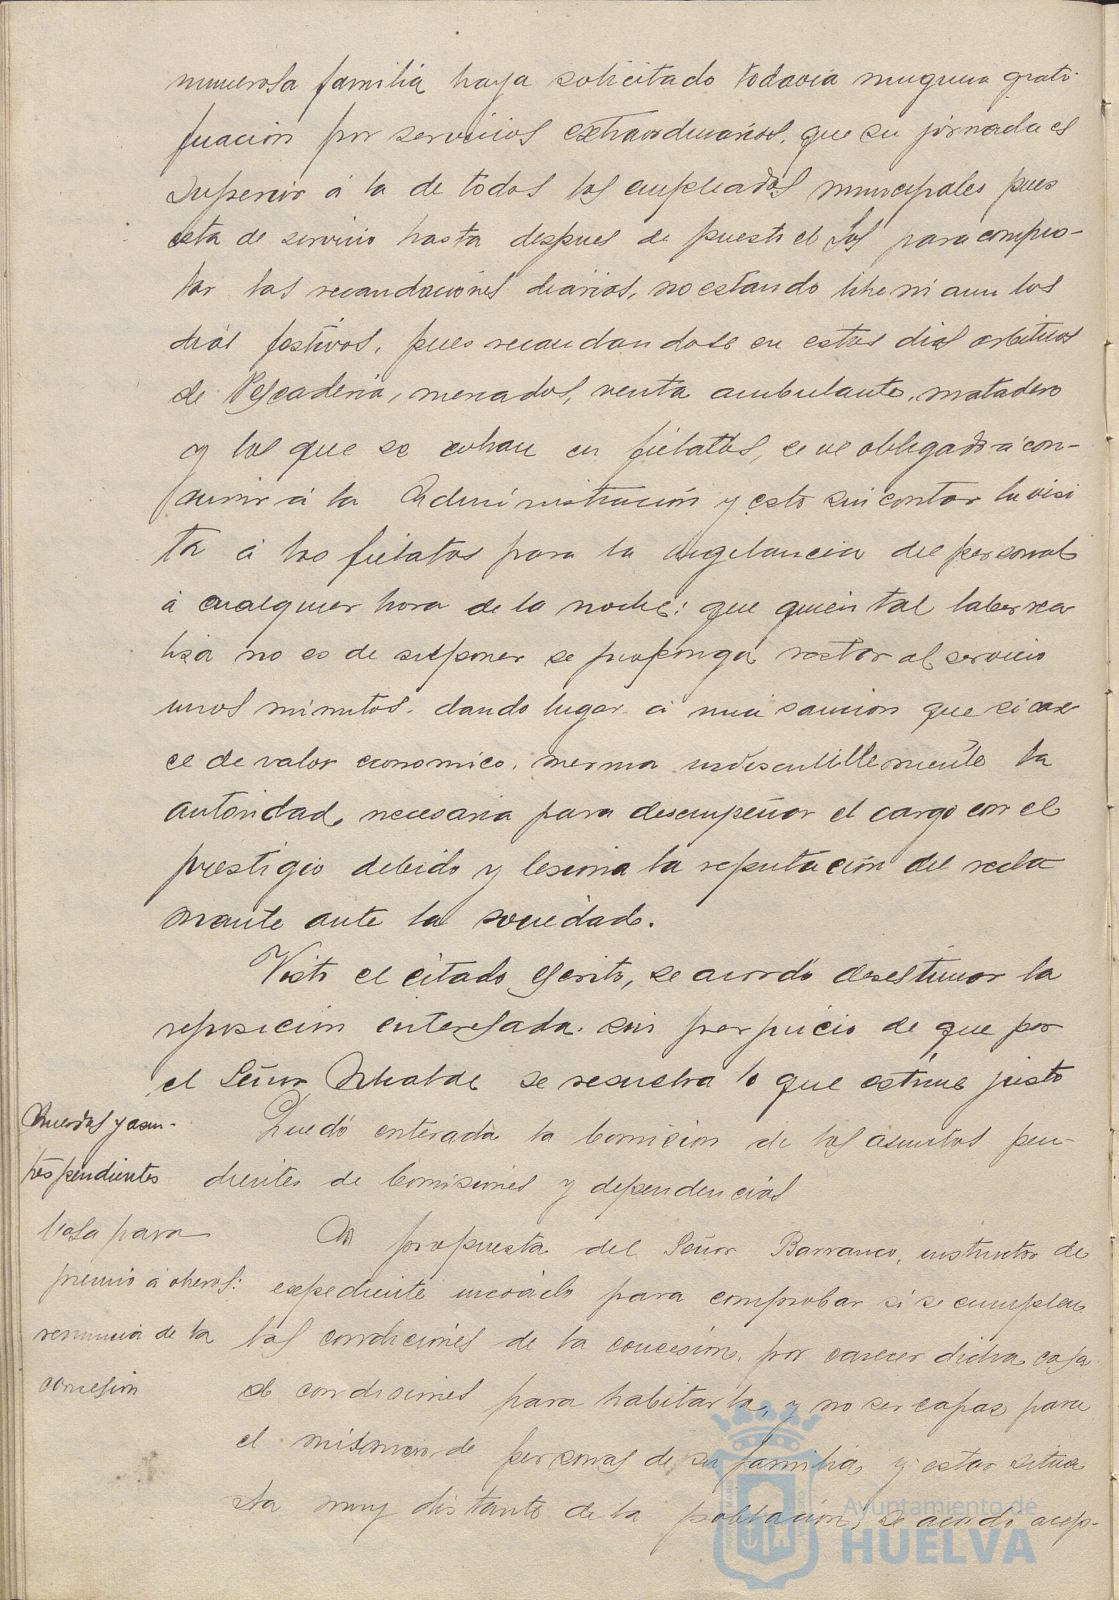 numerosa familia haya solicitado todavia ninguna grati-
ficacion por servicios extraordinarios, que su jornada es
superior á la de todos los empleados municipales pues
esta de servicio hasta despues de puesto el Sol para comple-
tar las recaudaciones diarias, no estando libre ni aun los
dias festivos, pues recaudandose en estos dias arbitrios
de Pescaderia, mercados, venta ambulante, matadero
y los que se cobran en fielatos, se ve obligado a con-
currir á la Administración y esto sin contar la visi
ta á los fielatos para la vigilancia del personal
á cualquier hora de la noche; que quien tal labor rea
liza no es de suponer se proponga restar al servicio
unos minutos, dando lugar á una sancion que si care
ce de valor economico, merma indiscutiblemente la
autoridad necesaria para desempeñar el cargo con el
prestigio debido y lesiona la reputación del recla
mante ante la sociedad.
Visto el citado escrito, se acordó desestimar la
reposicion interesada sin perjuicio de que por
el Señor Alcalde se resuelva lo que estime justo
Acuerdos y asun-
tos pendientes
Quedó enterada la Comision de los asuntos pen-
dientes de Comisiones y dependencias
Casa para
premio á obreros:
renuncia de la
concesion
A propuesta del Señor Barranco, instructor de
expediente incoado para comprobar si se cumplen
las condiciones de la concesion, por carecer dicha casa
de condiciones para habitarla, y no ser capaz para
el número de personas de su familia y estar situa
da muy distante de la población, se acordó acep-
Ayuntamiento de
HUELVA